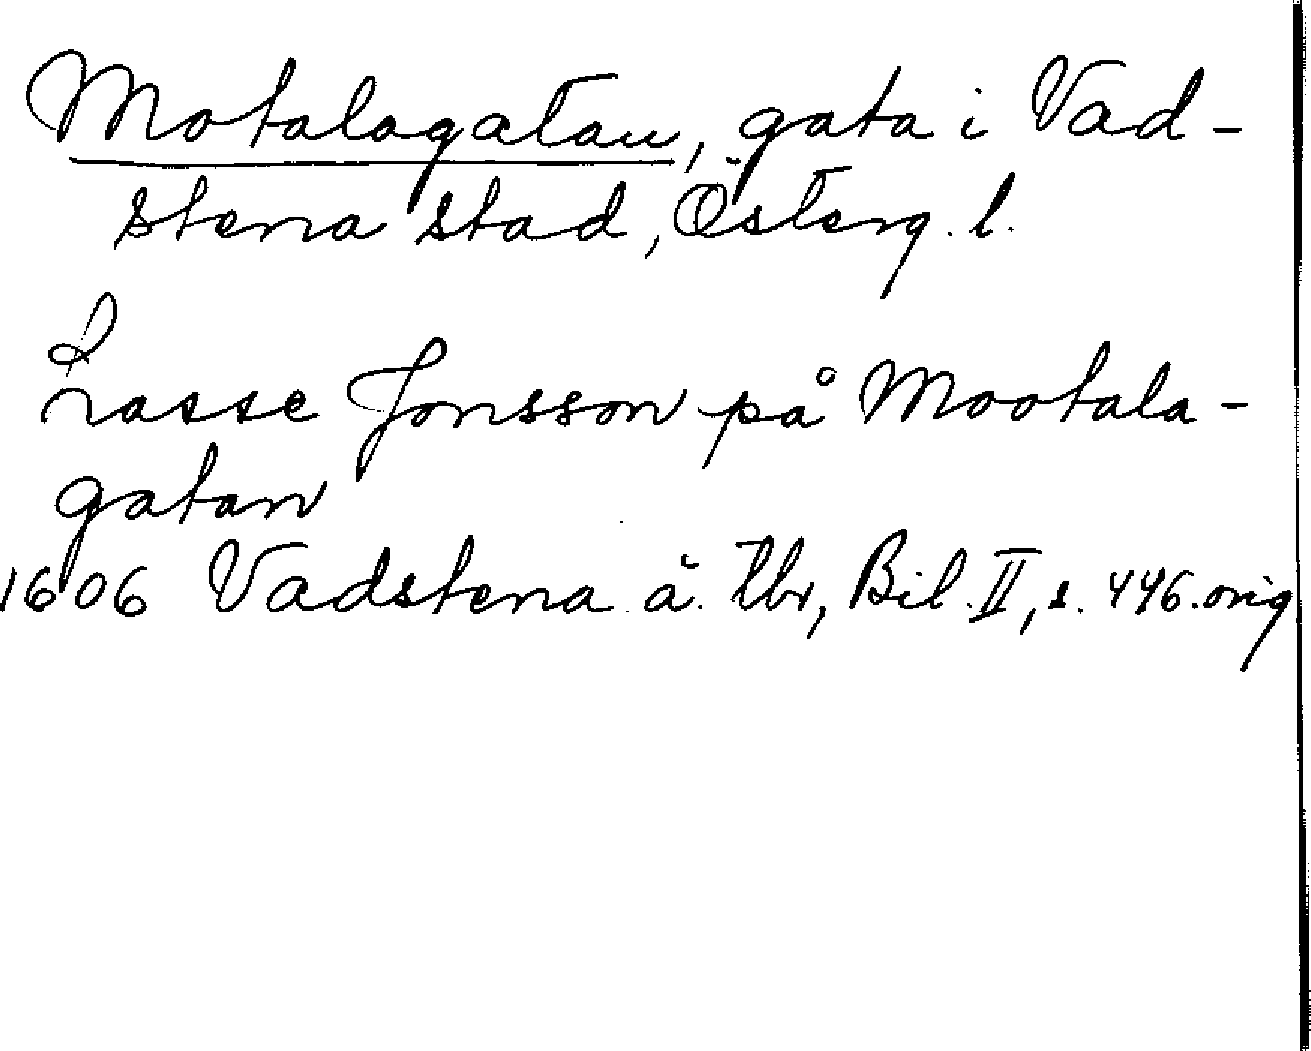 Motalagatan, gata i Vad-
stena stad, Österg. l.
Lasse Jonsson på Mootala-
gatan
1606 Vadstena ä. tbr, Bil. II, s. 446. orig